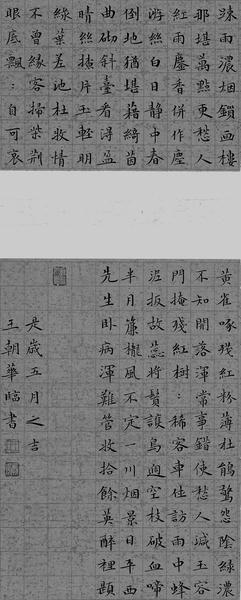 疎雨濃烟鎖画樓
那堪萬點更愁人
紅雨塵香併作塵
游絲白日靜中春
倒地猶堪藉綺茵
曲砌斜臺看得盈
晴絲片玉輕明
綠葉差池杜牧情
不曾緣客掃柴荆
眼底飄：自可哀
黃雀啄殘紅粉薄杜鵑驚怨陰綠濃
不知開落渾常事錯使愁人減玉容
門掩殘紅樹：稀客車住訪雨中蜂
扳故蕊將鬚護鳥過空枝破血啼
半月簾櫳風不定一川烟景日平西
先生卧病渾難管收拾餘英醉裡題
是歲五月之吉
王朝華臨書